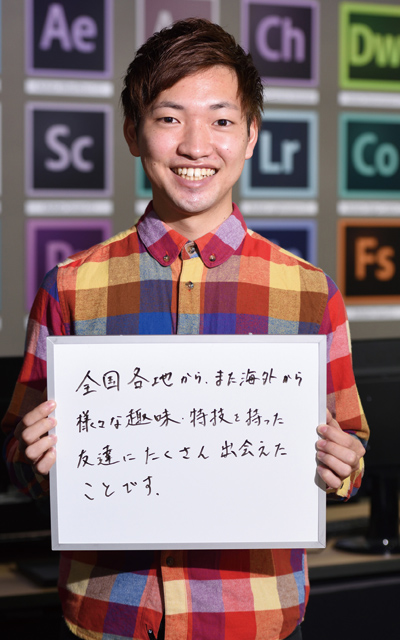 Ae
Ch
Dw
Sc
Lr
Co
Fs
全国各地から、また海外から
様々な趣味・特技を持った
友達にたくさん出会えた
ことです.